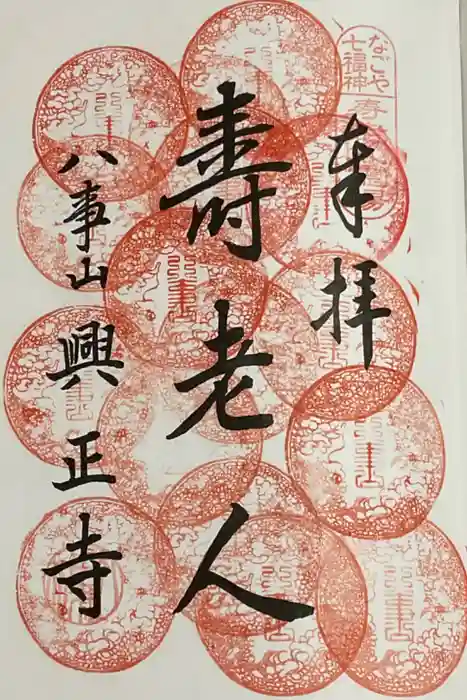 なごや
七福神
奉拝
壽老人
八事山
興正寺